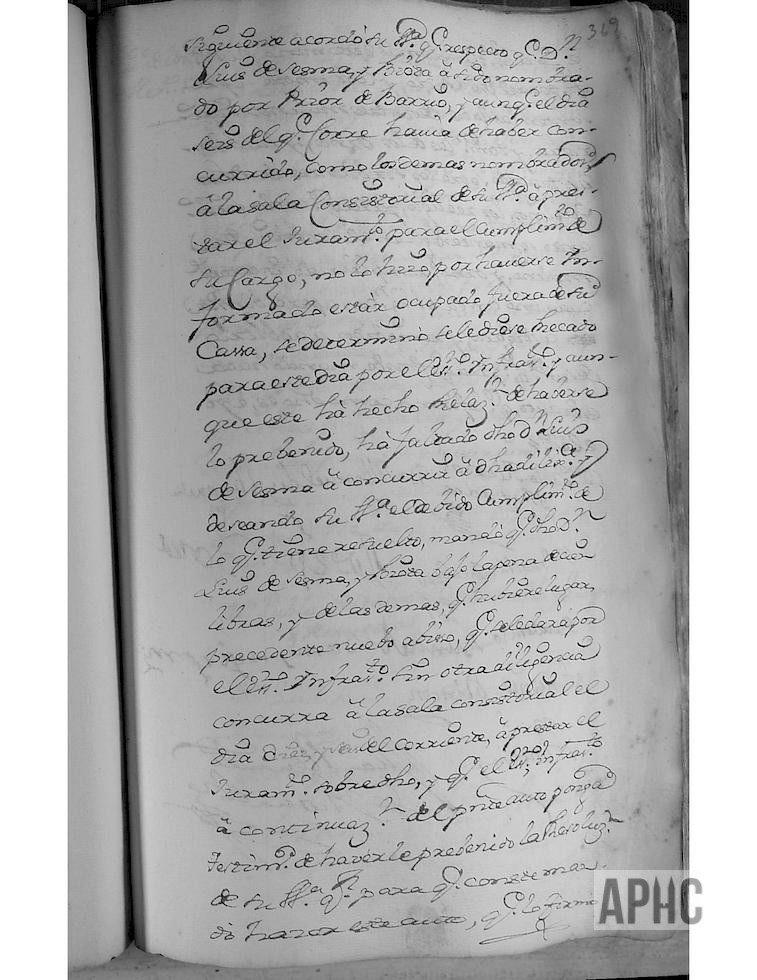 369
siguiente acordó su Sª. qᵉ. respecto qᵉ. Dⁿ.
Luis de Sesma, y Broza à sido nombra-
do por Prior de Barrio, y aunqᵉ. el dia
seis del qᵉ. Corre havia de haber con-
currido, como los demas nombrados
â la sala Consistorial de su Sª. â pres-
tar el Juramᵗᵒ. para el Cumplimᵗᵒ. de
su Cargo, no lo hizo por haverse in-
formado estàr ocupado fuera de su
Cassa, se determinó se le diese recado
para este dia por el Essⁿᵒ. Infrasᵗᵒ. y aun-
que este hà hecho Relazⁿ. de haberse
lo prebenido, hà faltado dho dⁿ. Luis
de Sesma â concurrir â dha dilixᵃ. y
deseando su Sª. el debido Cumplimᵗᵒ. de
lo qᵉ. tiene resuelto, mandó qᵉ. dho Dⁿ.
Luis de Sesma, y Broza bajo la pena de cien
libras, y de las demas, qᵉ. hubiere lugar,
precedente nuebo abiso, qᵉ. se le dará por
el Essⁿᵒ. Infrasᵗᵒ. sin otra diligencia
concurra â la sala consistorial el
dia diez, y seis del corriente, â prestar el
Juramᵗᵒ. sobredho, y qᵉ. el Essⁿᵒ. infrasᵗᵒ
â continuazⁿ. del prᵗᵉ auto ponga
testimᵒ. de haverle prebenido la Resoluzⁿ
de su Sª. y para qᵉ. conste man-
dó hazer este auto, qᵉ. lo firmó
APHC